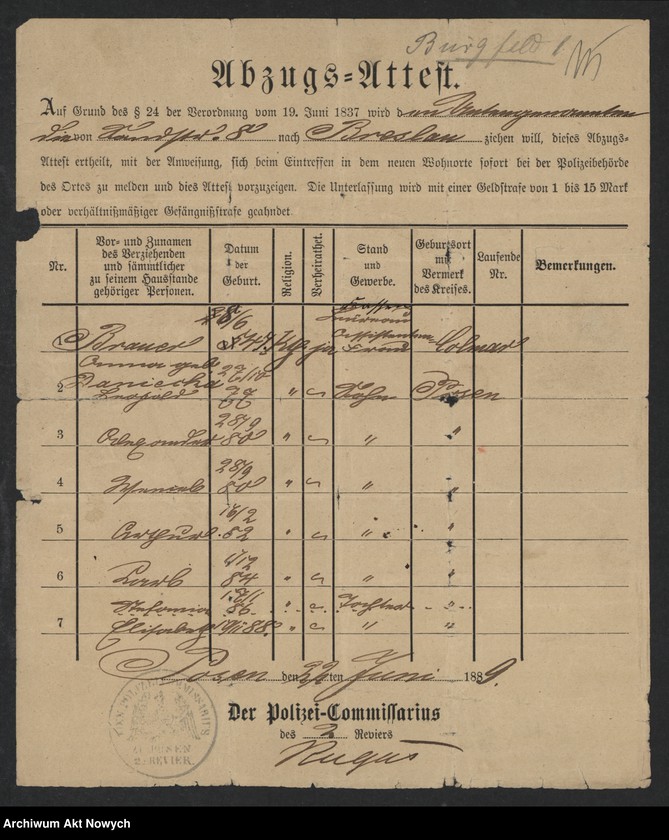 Burgfeld 1
Abzugs=Attest.
Auf Grund des § 24 der Verordnung vom 19. Juni 1837 wird den Untengenannten
die von Sandstr. 8 nach Breslau ziehen will, dieses Abzugs-
Attest ertheilt, mit der Anweisung, sich beim Eintreffen in dem neuen Wohnorte sofort bei der Polizeibehörde
des Ortes zu melden und dies Attest vorzuzeigen. Die Unterlassung wird mit einer Geldstrafe von 1 bis 15 Mark
oder verhältnißmäßiger Gefängnißstrafe geahndet
Nr. Vor- und Zunamen des Verziehenden und sämmtlicher zu seinem Hausstande gehöriger Personen. Datum der Geburt. Religion. Verheirathet. Stand und Gewerbe. Geburtsort mit Vermerk des Kreises. Laufende Nr. Bemerkungen.
Brauer ja Assistenten Frau Colmar
Anna geb.
Daniecka 22/10
2 Leopold 77 " Sohn Posen
28/9
3 Alexander 80 " " "
28/9
4 Wenzel 80 " " "
16/2
5 Arthur 82 " " "
6 Carl 84 " " "
Stefania 86 " Tochter "
7 Elisabeth 88 " " "
Posen den 22ten Juni 1889.
Der Polizei-Commissarius
des 2 Reviers
POSEN
2. REVIER.
Archiwum Akt Nowych